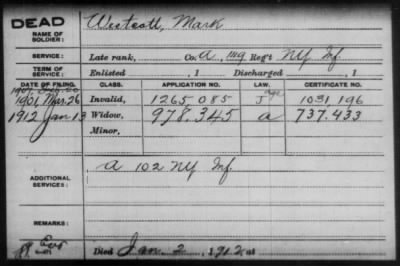 DEAD
NAME OF SOLDIER:
Westcott, Mark
SERVICE:
Late rank, Co. A, 149 Reg't NY Inf
TERM OF SERVICE:
Enlisted , 1 Discharged , 1
DATE OF FILING. CLASS. APPLICATION NO. LAW. CERTIFICATE NO.
1901 Mar. 26 Invalid, 1265.085 J age 1031,196
1912 Jan 13 Widow, 978.345 a 737.433
Minor,
ADDITIONAL SERVICES:
A 102 NY Inf.
REMARKS:
Died Jan. 2, 1912 at